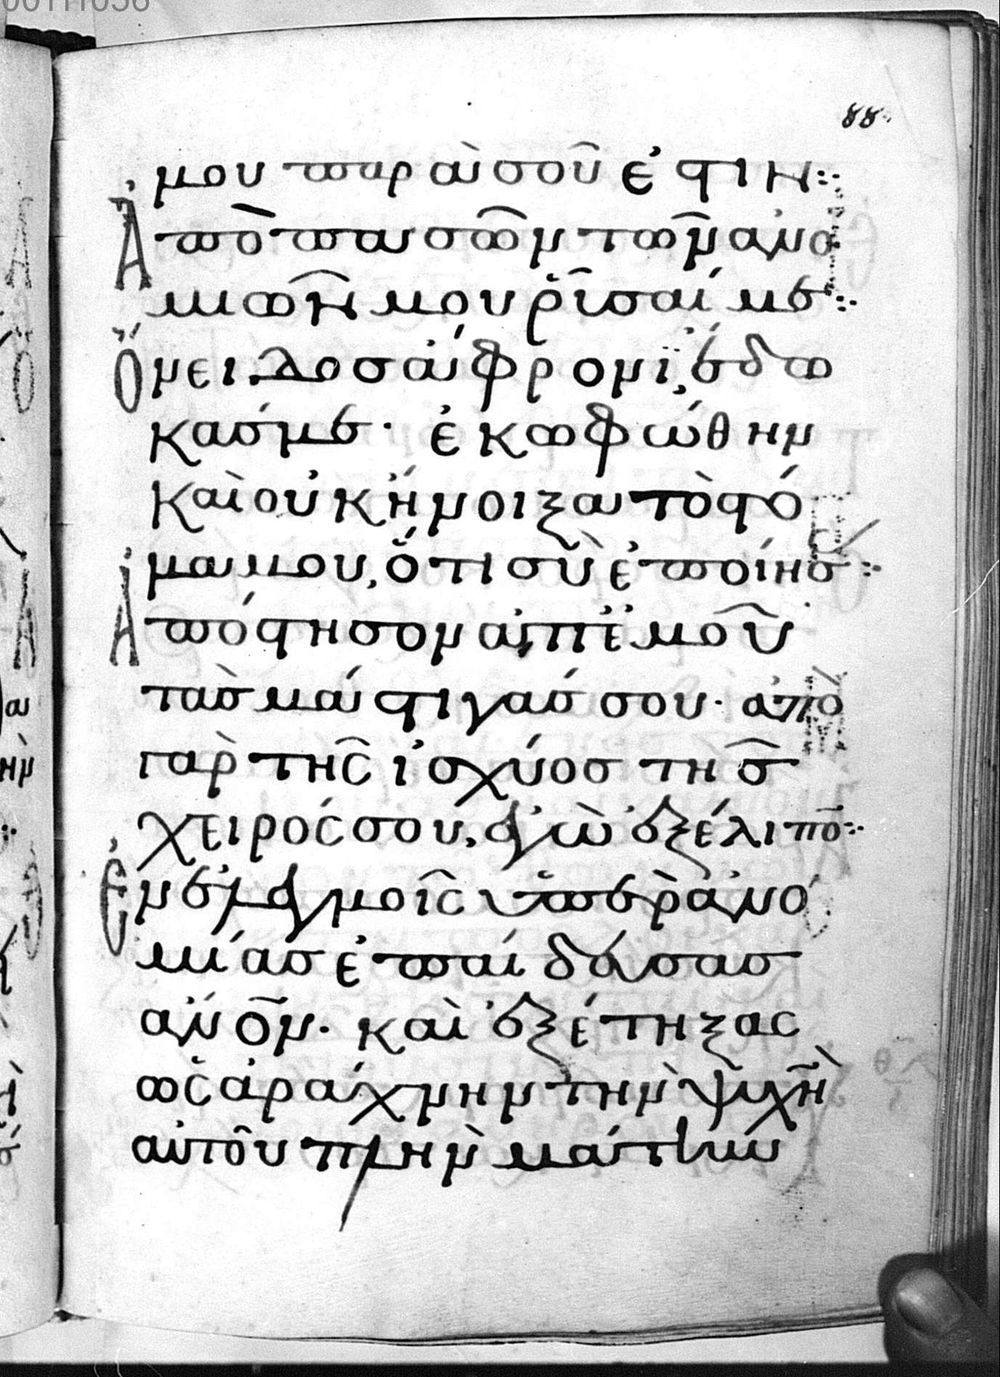 88
μου παρὰ σοῦ ἐστιν:
Ἀπὸ πασῶν τῶν ἀνο
μιῶν μου ῥῦσαί με:
Ὄνειδος ἄφρονι, ἔδω
κάς με· ἐκωφώθην
καὶ οὐκ ἤνοιξα τὸ στό
μα μου, ὅτι σὺ ἐποίησ:
Ἀπόστησον ἀπ' ἐμοῦ
τὰς μάστιγάς σου· ἀπὸ
γὰρ τῆς ἰσχύος τῆς
χειρός σου, ἐγὼ ἐξέλιπον:
Ἐν ἐλεγμοῖς ὑπὲρ ἀνο
μίας ἐπαίδευσας
ἄνον· καὶ ἐξέτηξας
ὡς ἀράχνην τὴν ψυχὴν
αὐτοῦ πλὴν μάτην